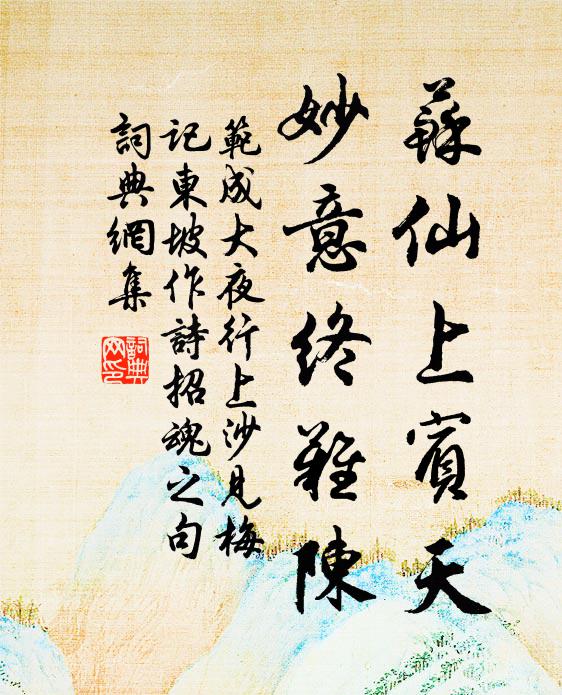 蘇仙上賓天
妙意終難陳
範成大夜行上沙見梅
記東坡作詩招魂之句
詞典網集
詞典
网印